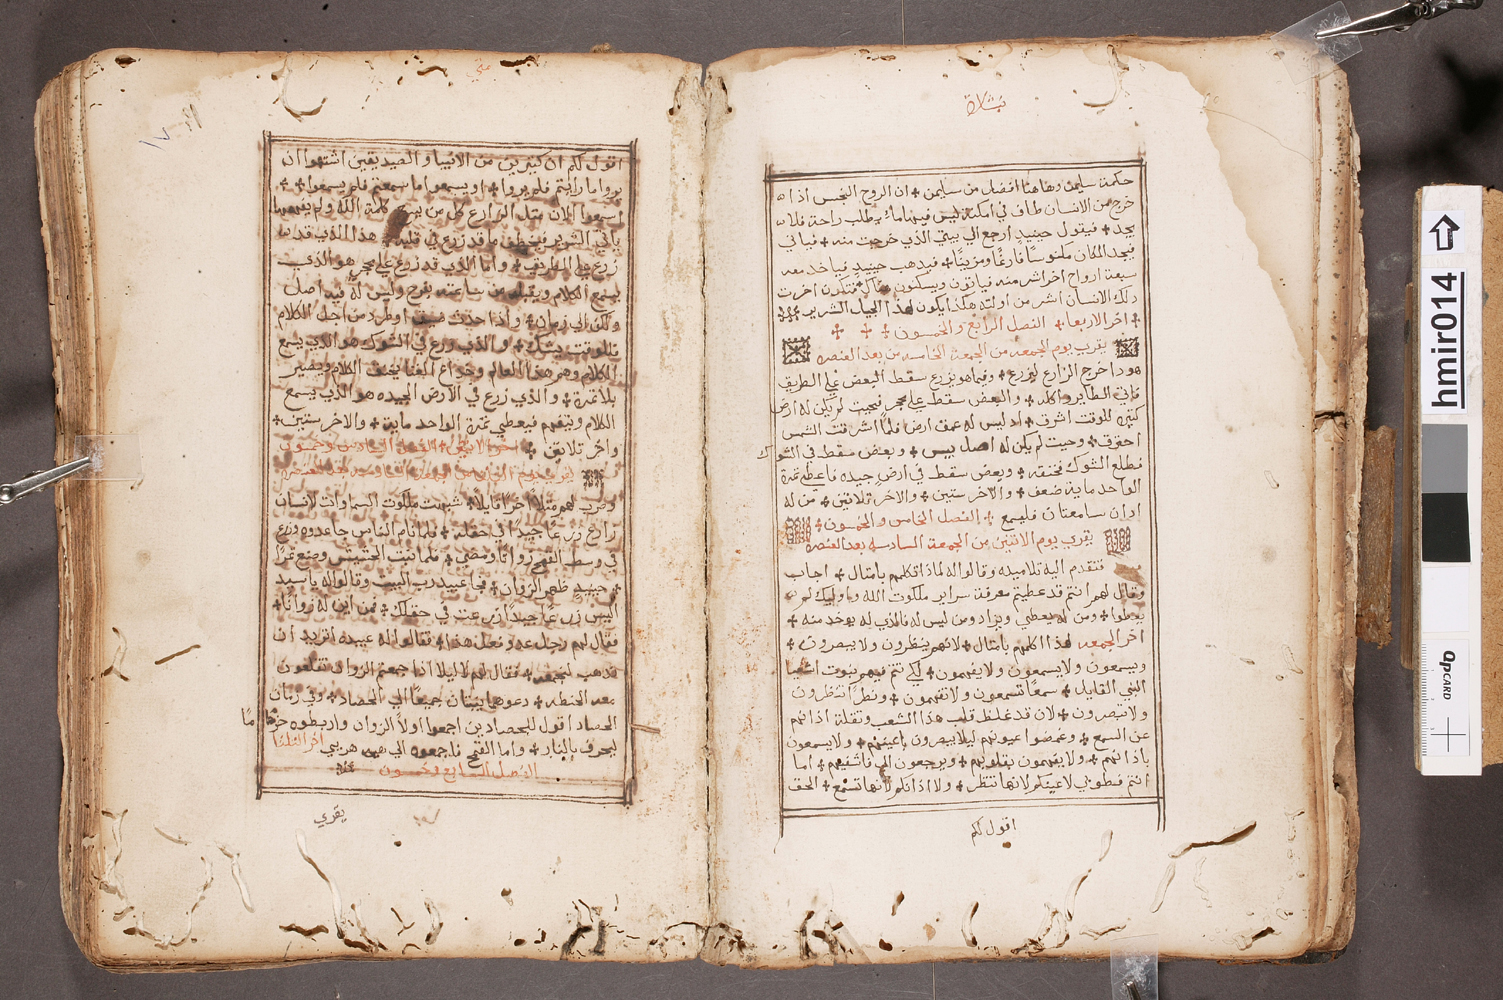 بشارة
حكمة سليمن وهاهنا افضل من سليمن ✢ ان الروح النجس اذا
خرج من الانسان طاف في امكنة ليس فيها ماء يطلب راحة فلا
يجد ✢ فيقول حينيد ارجع الي بيتي الذي خرجت منه ✢ فياتي
فيجد المكان مكنوسًا فارغًا ومزينًا ✢ فيدهب حينيد فياخد معه
سبعة ارواح اخر اشر منه فياتون ويسكنون هناك فتكون اخرت
دلك الانسان اشر من اولته هكذا يكون لهذا الجيل الشرير
✢ اخر الاربعا ✢ الفصل الرابع والخمسون ✢ ✢ ✢
يقري يوم الجمعه من الجمعة الخامسه من بعد العنصره
هودا خرج الزارع ليزرع ✢ وفيما هو يزرع سقط البعض علي الطريق
فاتي الطاير واكله ✢ والبعض سقط علي صخر فحيت لم يكن له ارض
كتيره للوقت اشرق ✢ اد ليس له عمق ارض فلما اشرقت الشمس
احترق ✢ وحيت لم يكن له اصل يبس ✢ وبعض سقط في الشوك
فطلع الشوك فخنقه ✢ وبعض سقط في ارض جيده فاعطي تمرة
الواحد ماية ضعف ✢ والاخر ستين ✢ والاخر تلاتين ✢ من له
ادان سامعتان فليسمع ✢ الفصل الخامس والخمسون ✢
يقري يوم الاتنين من الجمعة السادسه بعد العنصره
فتقدم اليه تلاميده وقالوا له لماذا تكلمهم بامتال ✢ اجاب
وقال لهم انتم قد عطيتم معرفة سراير ملكوت الله واوليك لم
يعطوا ✢ ومن له يعطي ويزاد ومن ليس له فالذي له يوخد منه ✢
اخر الجمعه لهذا اكلمهم بامتال ✢ لانهم ينظرون ولا يبصرون ✢
ويسمعون ولا يسمعون ولا يفهمون ✢ لكي تتم فيهم نبوت اشعيا
النبي القايل ✢ سمعًا تسمعون ولا تفهمون ✢ ونظرًا تنظرون
ولا تبصرون ✢ لان قد غلظ قلب هذا الشعب وتقلة اذانهم
عن السمع ✢ وغمضوا عيونهم ليلا يبصرون باعينهم ✢ ولا يسمعون
باذانهم ✢ ولا يفهمون بقلوبهم ✢ ويرجعون الي فاشفيهم ✢ اما
انتم فطوبي لاعينكم لانها تنظر ✢ ولا اذانكم لانها تسمع ✢ الحق
اقول لكم
متي
اقول لكم ان كتيرين من الانبيا والصديقين اشتهوا ان
يروا ما رايتم فلم يروا ✢ ويسمعوا ما سمعتم فلم يسمعوا ✢
اسمعوا الان متل الزارع كل من يسمع كلمة الله ولم يفهمها
ياتي الشرير فيخطف ما قد زرع في قلبه ✢ هذا الذي قد
زرع علي الطريق ✢ واما الذي قد زرع علي صخر هو الذي
يسمع الكلام ويقبله من ساعته بفرح وليس له فيه اصل
ولكن الي زمان ✢ واذا حدت ضيق او طرد من اجل الكلام
فللوقت يشك ✢ والذي زرع في الشوك هو الذي يسمع
الكلام وهم هذا العالم وخداع الغنا يخنق الكلام ويصير
بلا تمرة ✢ والذي زرع في الارض الجيده هو الذي يسمع
الكلام ويتفهم فيعطي تمرة الواحد ماية ✢ والاخر ستين ✢
واخر تلاتين ✢ اخر الاتنين ✢ الفصل السادس وخمسون
وضرب لهم متلًا اخر قايلًا ✢ شبهت ملكوت السماوات لانسان
زارع زرعًا جيدًا في حقله ✢ فلما نام الناس جا عدوه وزرع
في وسط القمح زوانًا ومضي ✢ فلما نبت الحشيش وصنع تمرًا
✢ حينيد ظهر الزوان ✢ فجا عبيد رب البيت وقالوا له يا سيد
اليس زرعًا جيدًا زرعت في حقلك ✢ فمن اين له زوانًا ✢
فقال لهم رجل عدو فعل هذا ✢ فقالوا له عبيده اتريد ان
ندهب لنجمعه ✢ فقال لهم لا ليلا اذا جمعتم الزوان تقلعون
معه الحنطه ✢ دعوهما ينبتان جميعًا الي الحصاد ✢ وفي زمان
الحصاد اقول للحصادين اجمعوا اولًا الزوان واربطوه حزمًا
ليحرق بالنار ✢ واما القمح فاجمعوه الي هريي اخر التلتا
الفصل السابع وخمسون
يقري
hmir014
QPCARD